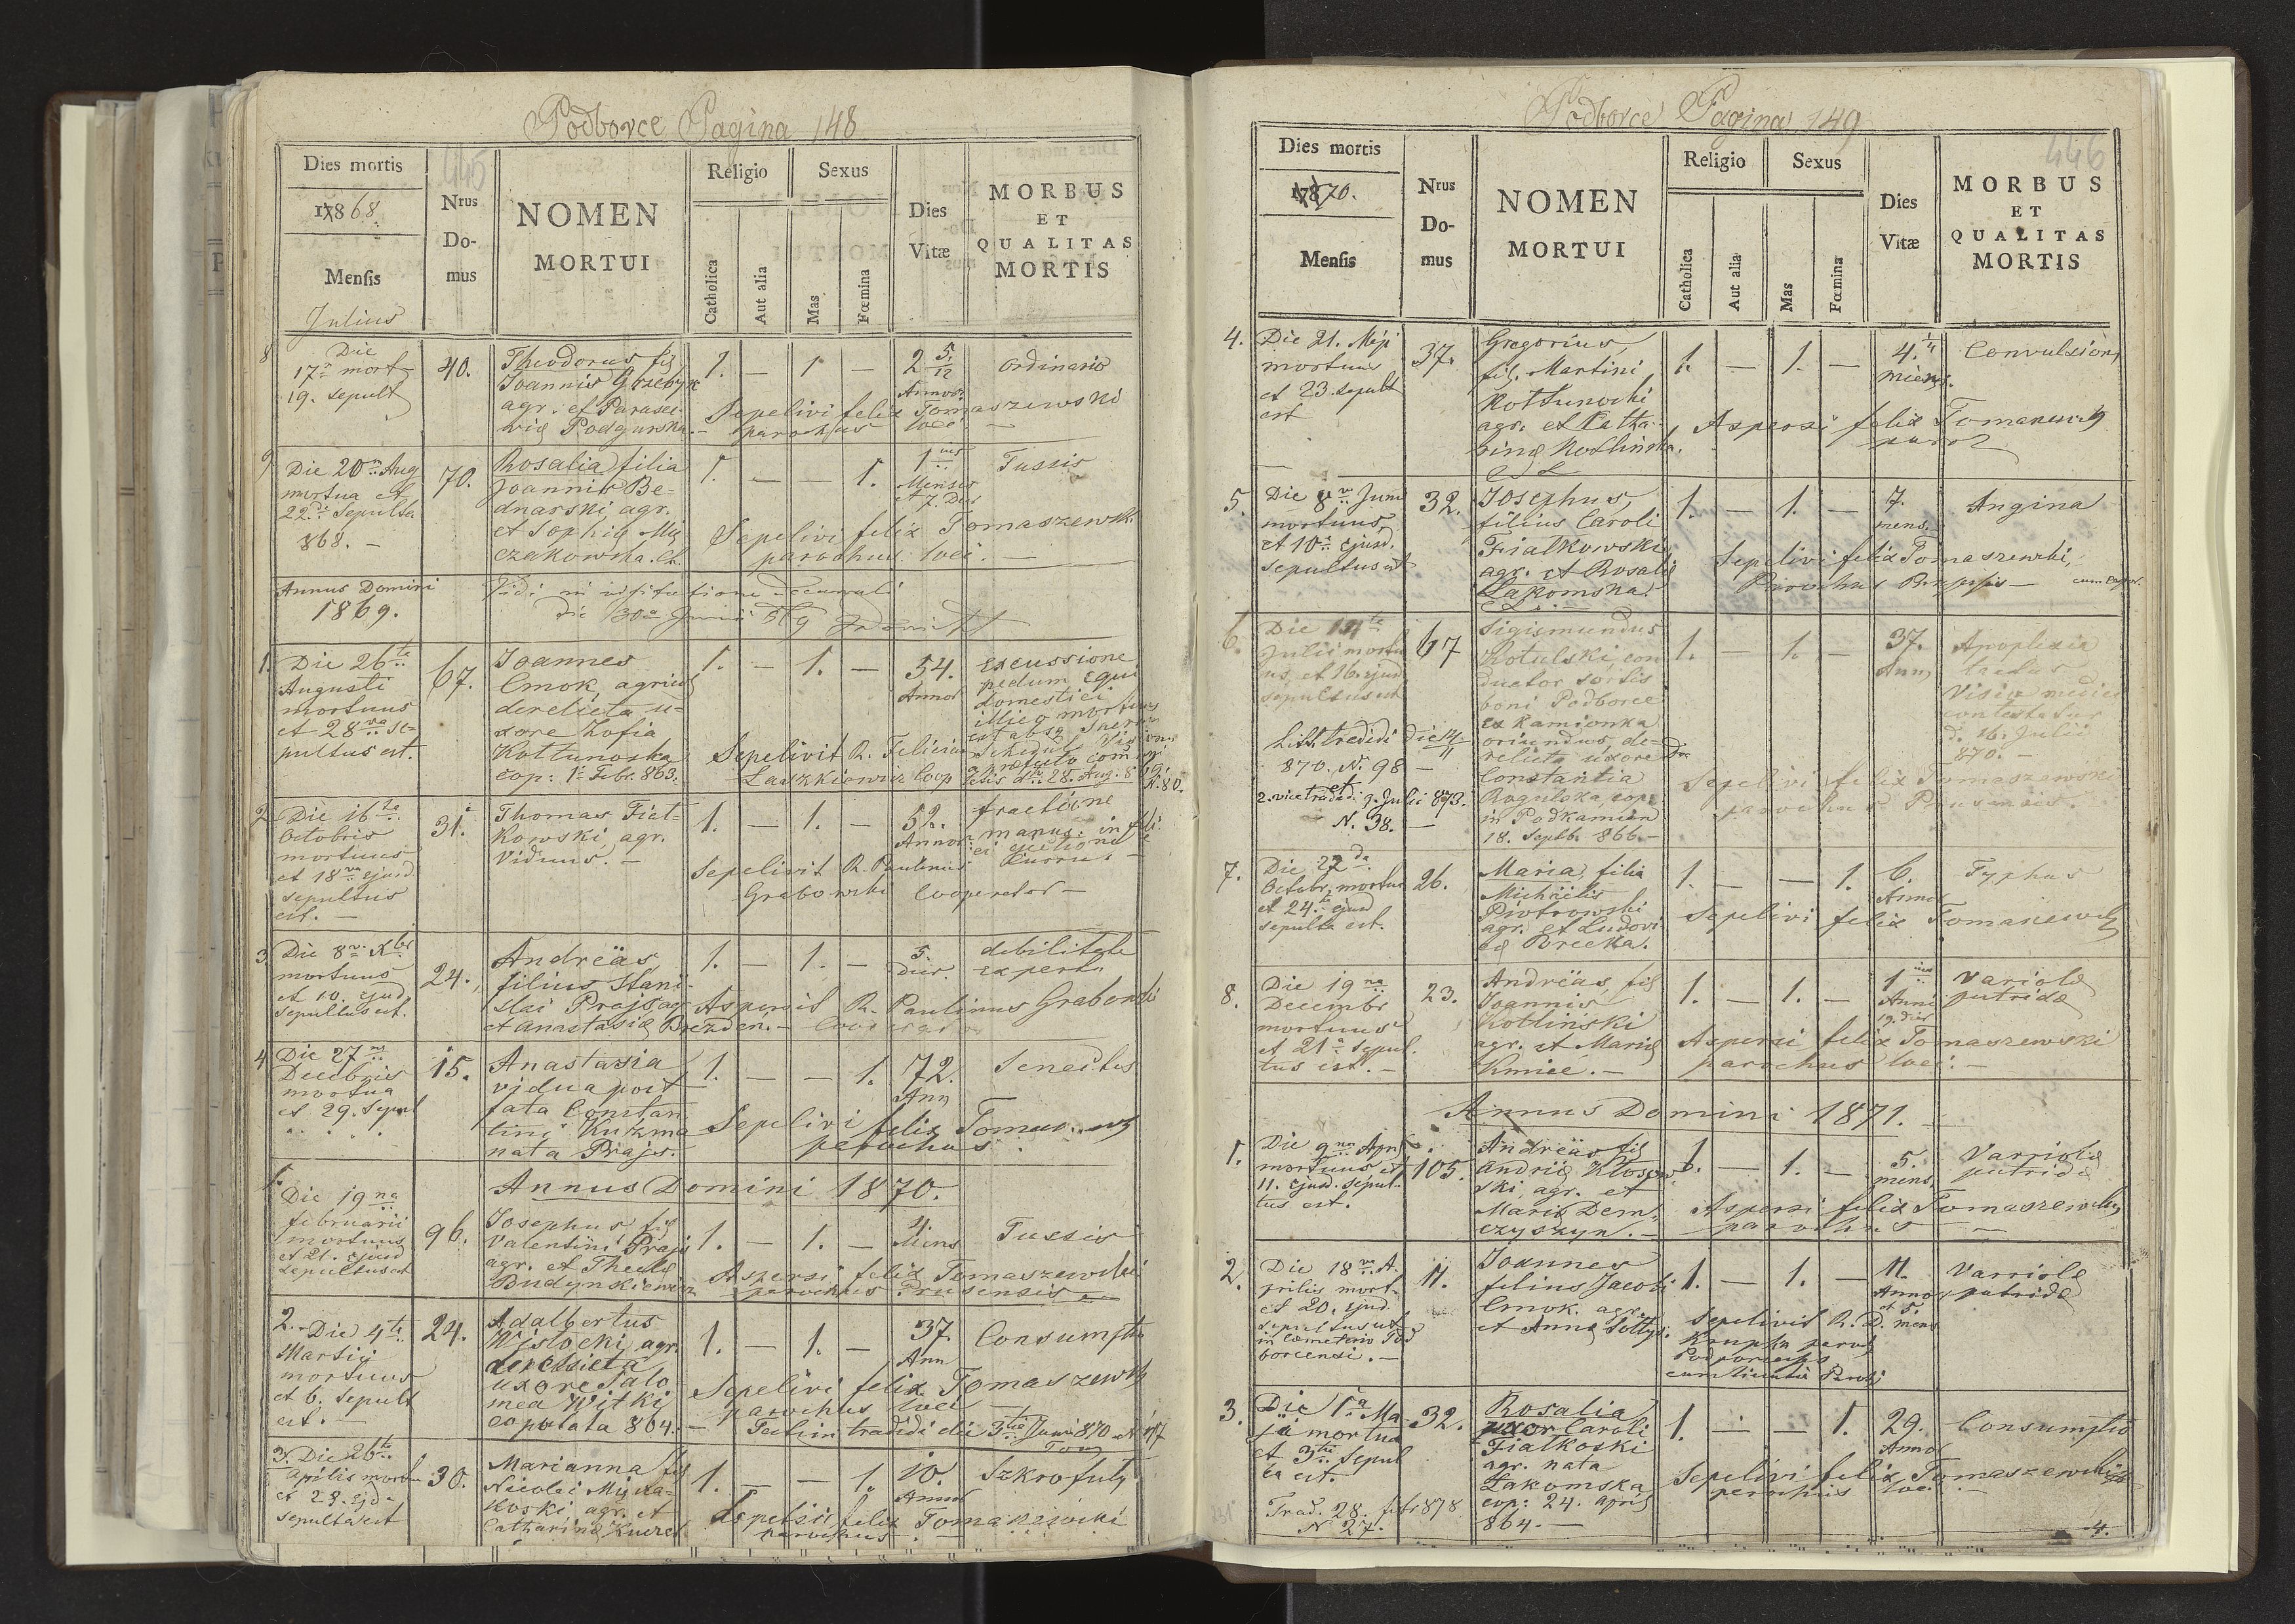 Podborce Pagina 148
445
Dies mortis
1868.
Mensis
Julius
Nrus
Do-
mus
NOMEN
MORTUI
Religio
Catholica
Aut alia
Sexus
Mas
Fœmina
Dies
Vitæ
MORBUS
ET
QUALITAS
MORTIS
8
Die
17a mort
19. sepult
40.
Theodorus fil
Joannis Grzebyk
agr. et Parasce-
vią Podgurska.
1. — 1 —
2 5/12
Annor.
ordinario
Sepelivi felix Tomaszewski
parochus loci —
9
Die 20a Aug
mortua et
22di Sepulta
868. —
70.
Rosalia filia
Joannis Be=
dnarski agr.
et Sophią
1. — — 1.
1ius
Mensis
et 7. Dies
Tussis
Sepelivi felix Tomaszewski
parochus loci. —
Annus Domini
1869.
Vidi in visitatione Decanali
die 30a Junii 869
1.
Die 26te
Augusti
mortuus
et 28va se-
pultus est.
67.
Joannes
Cmok, agricol
derelicta u-
xore Zofia
Kottunoska
cop: 1a Febr. 863.
1. — 1. —
54.
Annor
excussione
pedum equi
domestici
illico mortuus
est absq
Sepelivit R. Felician
Laszkiewicz Coop
28. Aug. 869.
N. 80.
2
Die 16ta
Octobris
mortuus
et 18va ejusd
sepultus
est. —
31.
Thomas Fiał=
kowski agr.
Viduus. —
1. — 1. —
52.
Annor
fractione
manus in
currus —
Sepelivit R. Paulinus
Grabowski Cooperator —
3.
Die 8va Xbr
mortuus
et 10. ejusd
Sepultus est.
24.
Andreäs
filius Stani-
slai Prajs agr
et Anastasię Brezden. —
1. — 1. —
5.
Dier.
debilitate
expert.
Aspersit R. Paulinus Grabowski
4
Die 27ma
Decebris
mortua
et 29. Sepul
15.
Anastasia
vidua post
fata Constan
tini Kuzma
nata Prajs.
1. — — 1.
72.
Ann
Senectus
Sepelivi felix
parochus.
Annus Domini 1870.
1.
Die 19na
februarii
mortuus
et 21. ejusd
sepultus est
96.
Josephus fil
Valentini Prajs
agr. et Theclę
Budynkiewicz
1. — 1. —
4.
Mens
Tussis
Aspersi felix Tomaszewski
parochus Prusensis —
2.
Die 4ta
Martii
mortuus
et 6. sepult
est. —
24.
Adalbertus
Wisłocki, agr.
derelicta
uxore Salo
mea Witki
copulata 864. —
1. — 1. —
37.
Ann
Consumptio
Sepelivi felix Tomaszewski
parochus loci
tradidi die 3tia Junii 870
3.
Die 26ta
Aprilis mortu
et 28. ejd.
sepulta est
30.
Marianna fil
Nicolai
koski agr. et
Catharinę
1. — — 1.
10.
Annor
Szkrofuły
felix Tomaszewski
parochus.
Podborce Pagina 149
446
Dies mortis
1870.
Mensis
Nrus
Do-
mus
NOMEN
MORTUI
Religio
Catholica
Aut alia
Sexus
Mas
Fœmina
Dies
Vitæ
MORBUS
ET
QUALITAS
MORTIS
4.
Die 21. Maji
mortuus
et 23. sepult
est
37.
Gregorius,
fil. Martini
Kottunoski
agr. et Katha-
rinę Kotlińska.
1. — 1. —
4.
mens.
Convulsion
Aspersi felix
paroc
5.
Die 8va Juni
mortuus,
et 10a ejusd.
sepultus est
32.
Josephus,
filius Caroli
Fiałkowski
agr. et Rosalię
Łakomska.
1. — 1. —
7.
mens.
Angina
Sepelivi felix Tomaszewski,
Parochus
6.
Die 14ta
Julii mortu
us, et 16. ejusd
sepultus est
67
Sigismundus
Kotulski, con
ductor sortis
boni Podborce
ex Kamionka
oriundus, de=
relicta uxore
Constantia
Rogulska, cop:
in Podkamien
18. Septb. 866. —
1. — 1. —
37.
Ann
Apoplexia
tactus
Visio medici
contestatur
d. 16. Julii
870. —
tradidi die 14/11
870. N. 98 —
et
2. vice tradidi 9. Julii 873.
N. 38. —
Sepelivi felix Tomaszewski
parochus Prusensis.
7.
Die 22da
Octobr. mortua
et 24ta ejusd
sepulta est.
26.
Maria, filia
Michäelis
Piotrowski
agr. et Ludovi
cę Brecka.
1. — — 1.
6.
Annor
Typhus
Sepelivi felix
8.
Die 19na
Decembr
mortuus
et 21a sepul.
tus est. —
23.
Andreäs, fil
Joannis
Kotliński
agr. et Marię
Kmieć. —
1. — 1. —
1ius
Anni
19. dies
Variolę
putridę
Aspersi felix Tomaszewski
parochus loci. —
Annus Domini 1871.
1.
Die 9na Apr
mortuus et
11. ejusd. sepul-
tus est.
105.
Andreäs fil
Andrię Kłosow
ski, agr. et
Marię Dem-
czyszyn. —
1. — 1. —
5.
mens.
Varriolę
putridę
Aspersi felix Tomaszewski
parochus —
2.
Die 18va A-
prilis mort.
et 20. ejusd
sepultus est
in Cœmeterio Pod
borcensi. —
11.
Joannes
filius Jacobi
Cmok. agr.
et Annę Sołtys.
1. — 1. —
11.
Annor
et 5. mens
Varriolę
putridę
Sepelivit R. D.
Krupka paroch
3.
Die 1a Ma-
jii mortua
et 3tia Sepul
ta est.
32.
Rosalia
uxor Caroli
Fiałkoski
agr. nata
Łakomska
cop: 24. April
864. —
1. — — 1.
29.
Annor
Consumptio
Sepelivi felix Tomaszewski
parochus loci —
Trad. 28. feb: 878
N 27.
4.